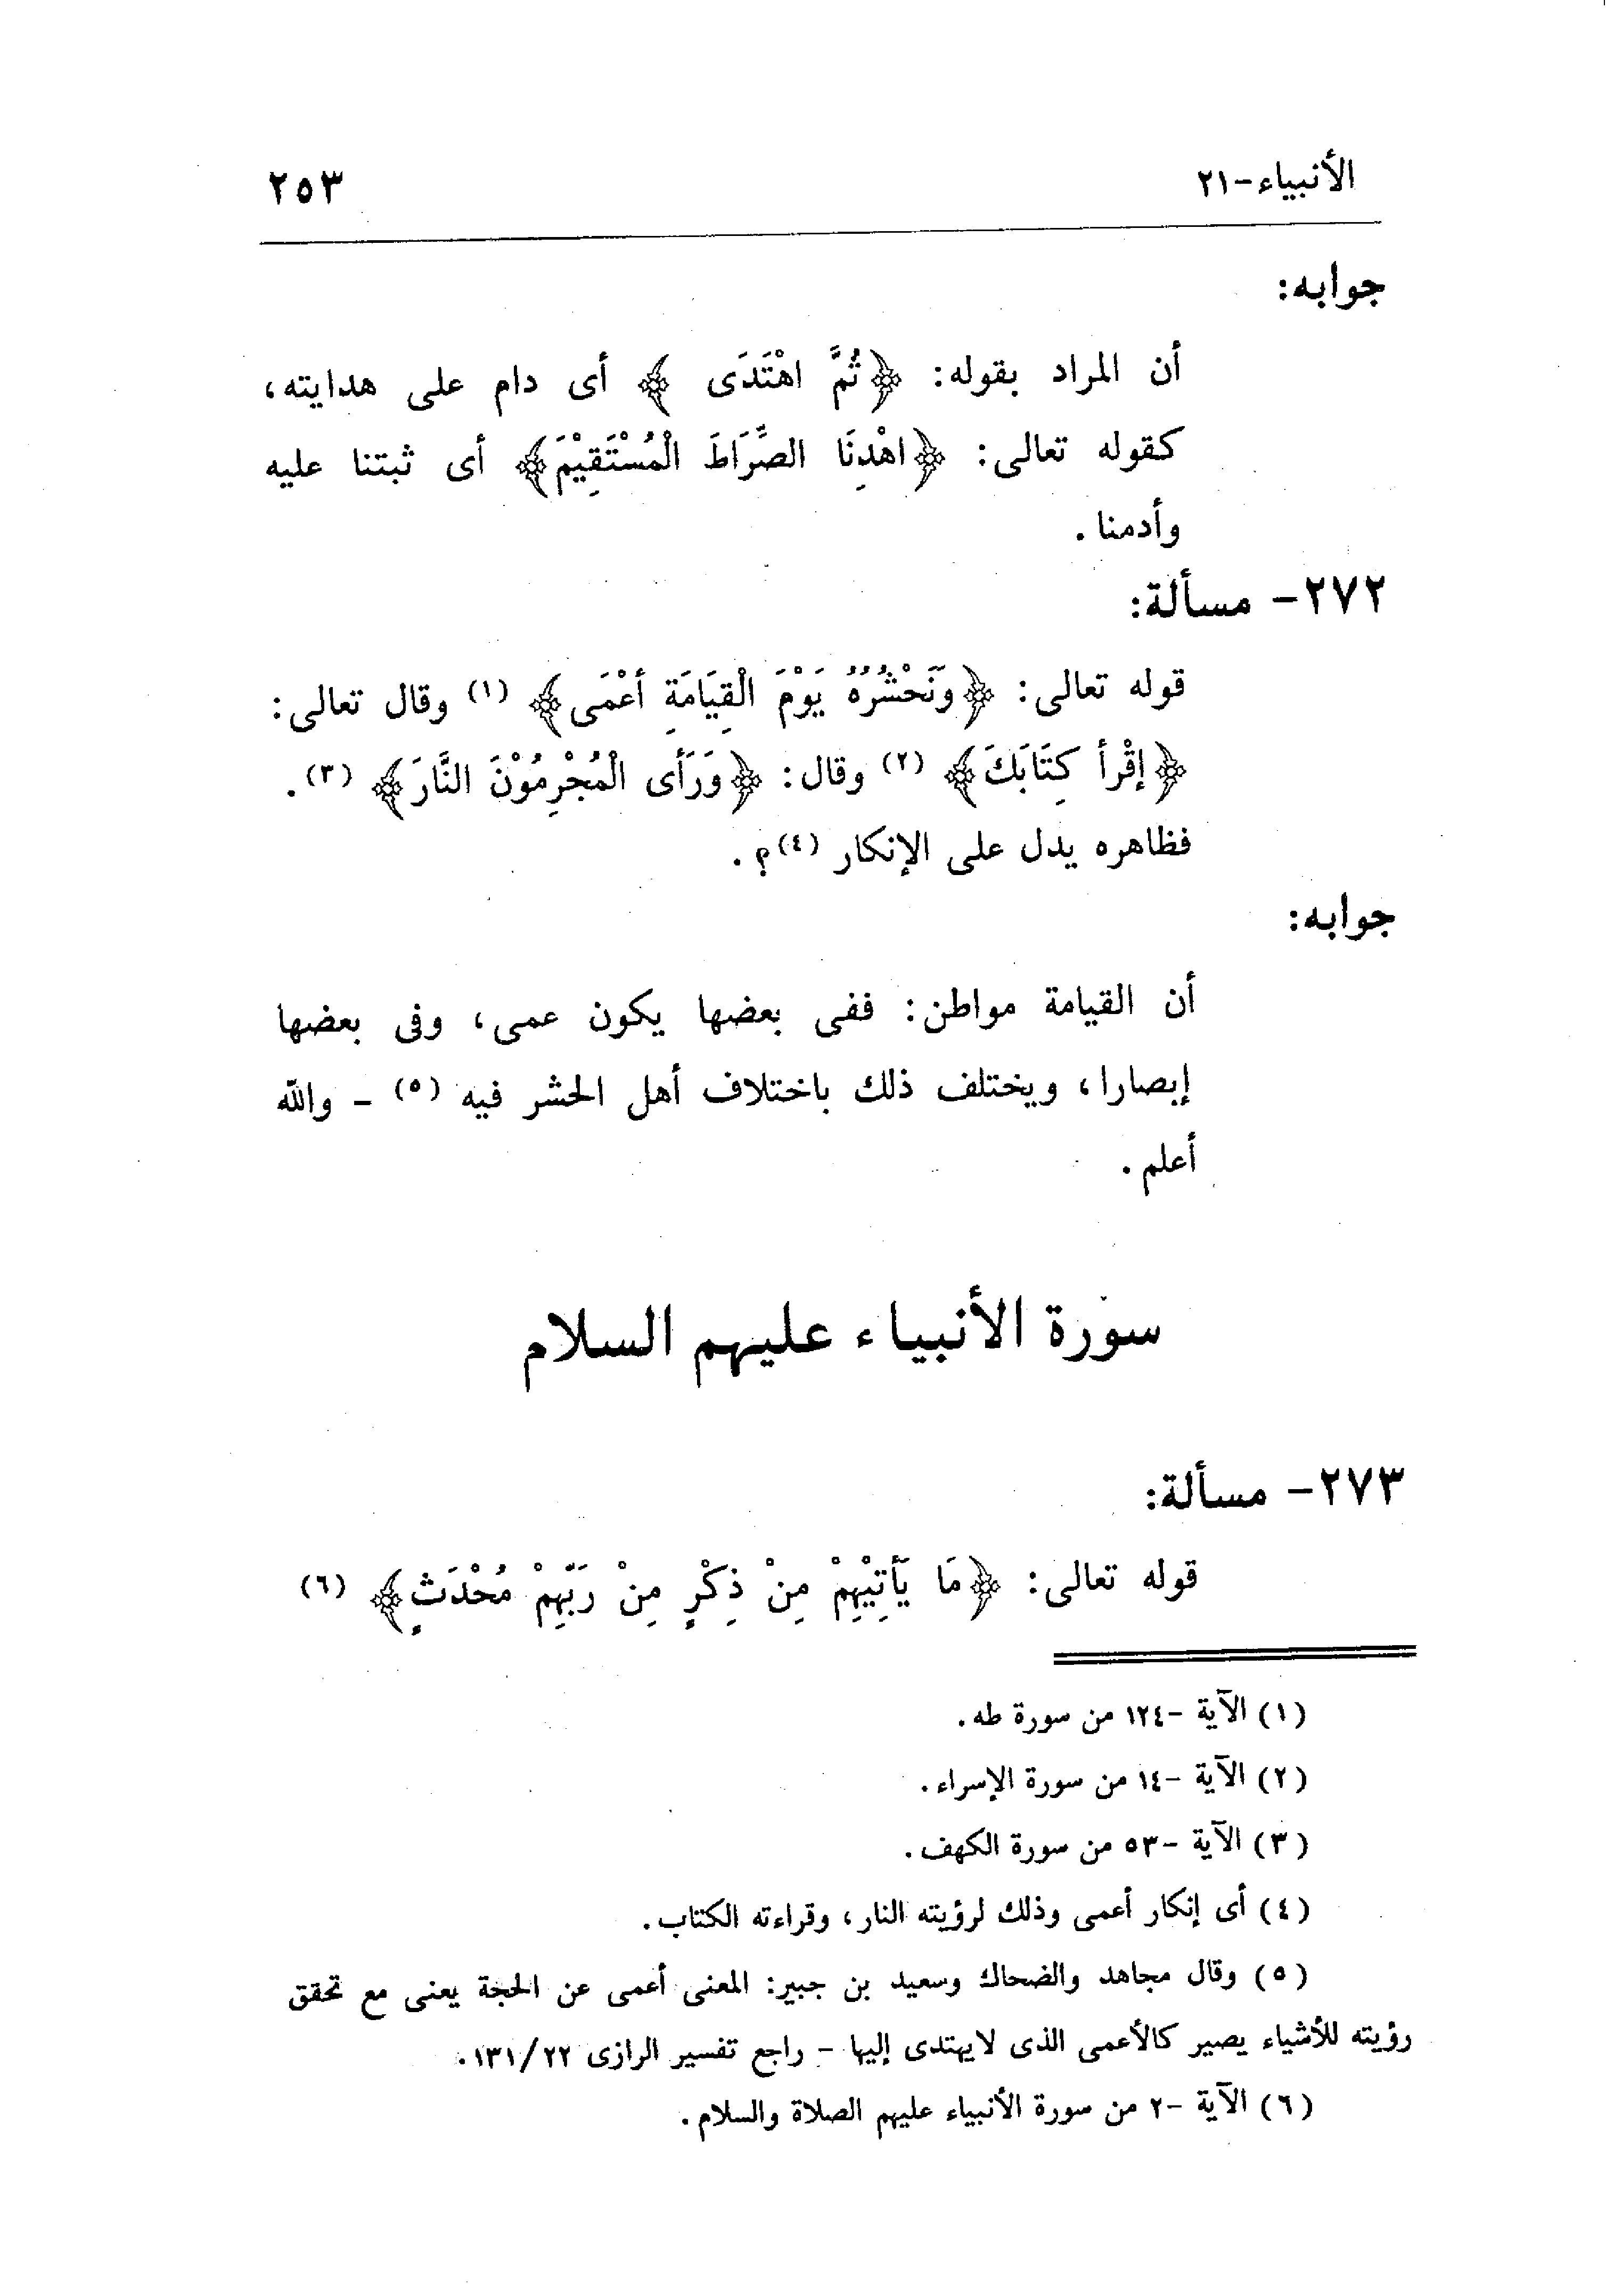 الأنبياء-٢١ ٢٥٣
جوابه:
أن المراد بقوله: ﴿ثُمَّ اهْتَدَى﴾ أى دام على هدايته،
كقوله تعالى: ﴿اهْدِنَا الصِّرَاطَ الْمُسْتَقِيْمَ﴾ أى ثبتنا عليه
وأدمنا.
٢٧٢- مسألة:
قوله تعالى: ﴿وَنَحْشُرُهُ يَوْمَ الْقِيَامَةِ أَعْمَى﴾ (١) وقال تعالى:
﴿إقْرأ كِتَابَكَ﴾ (٢) وقال: ﴿وَرَأَى الْمُجْرِمُوْنَ النَّارَ﴾ (٣).
فظاهره يدل على الإنكار (٤)؟.
جوابه:
أن القيامة مواطن: ففى بعضها يكون عمى، وفى بعضها
إبصارا، ويختلف ذلك باختلاف أهل الحشر فيه (٥) - والله
أعلم.
سورة الأنبياء عليهم السلام
٢٧٣- مسألة:
قوله تعالى: ﴿مَا يَأْتِيْهِمْ مِنْ ذِكْرٍ مِنْ رَبِّهِمْ مُحْدَثٍ﴾ (٦)
(١) الآية -١٢٤ من سورة طه.
(٢) الآية -١٤ من سورة الإسراء.
(٣) الآية -٥٣ من سورة الكهف.
(٤) أى إنكار أعمى وذلك لرؤيته النار، وقراءته الكتاب.
(٥) وقال مجاهد والضحاك وسعيد بن جبير: المعنى أعمى عن الحجة يعنى مع تحقق
رؤيته للأشياء يصير كالأعمى الذى لايهتدى إليها - راجع تفسير الرازى ١٣١/٢٢.
(٦) الآية -٢ من سورة الأنبياء عليهم الصلاة والسلام.